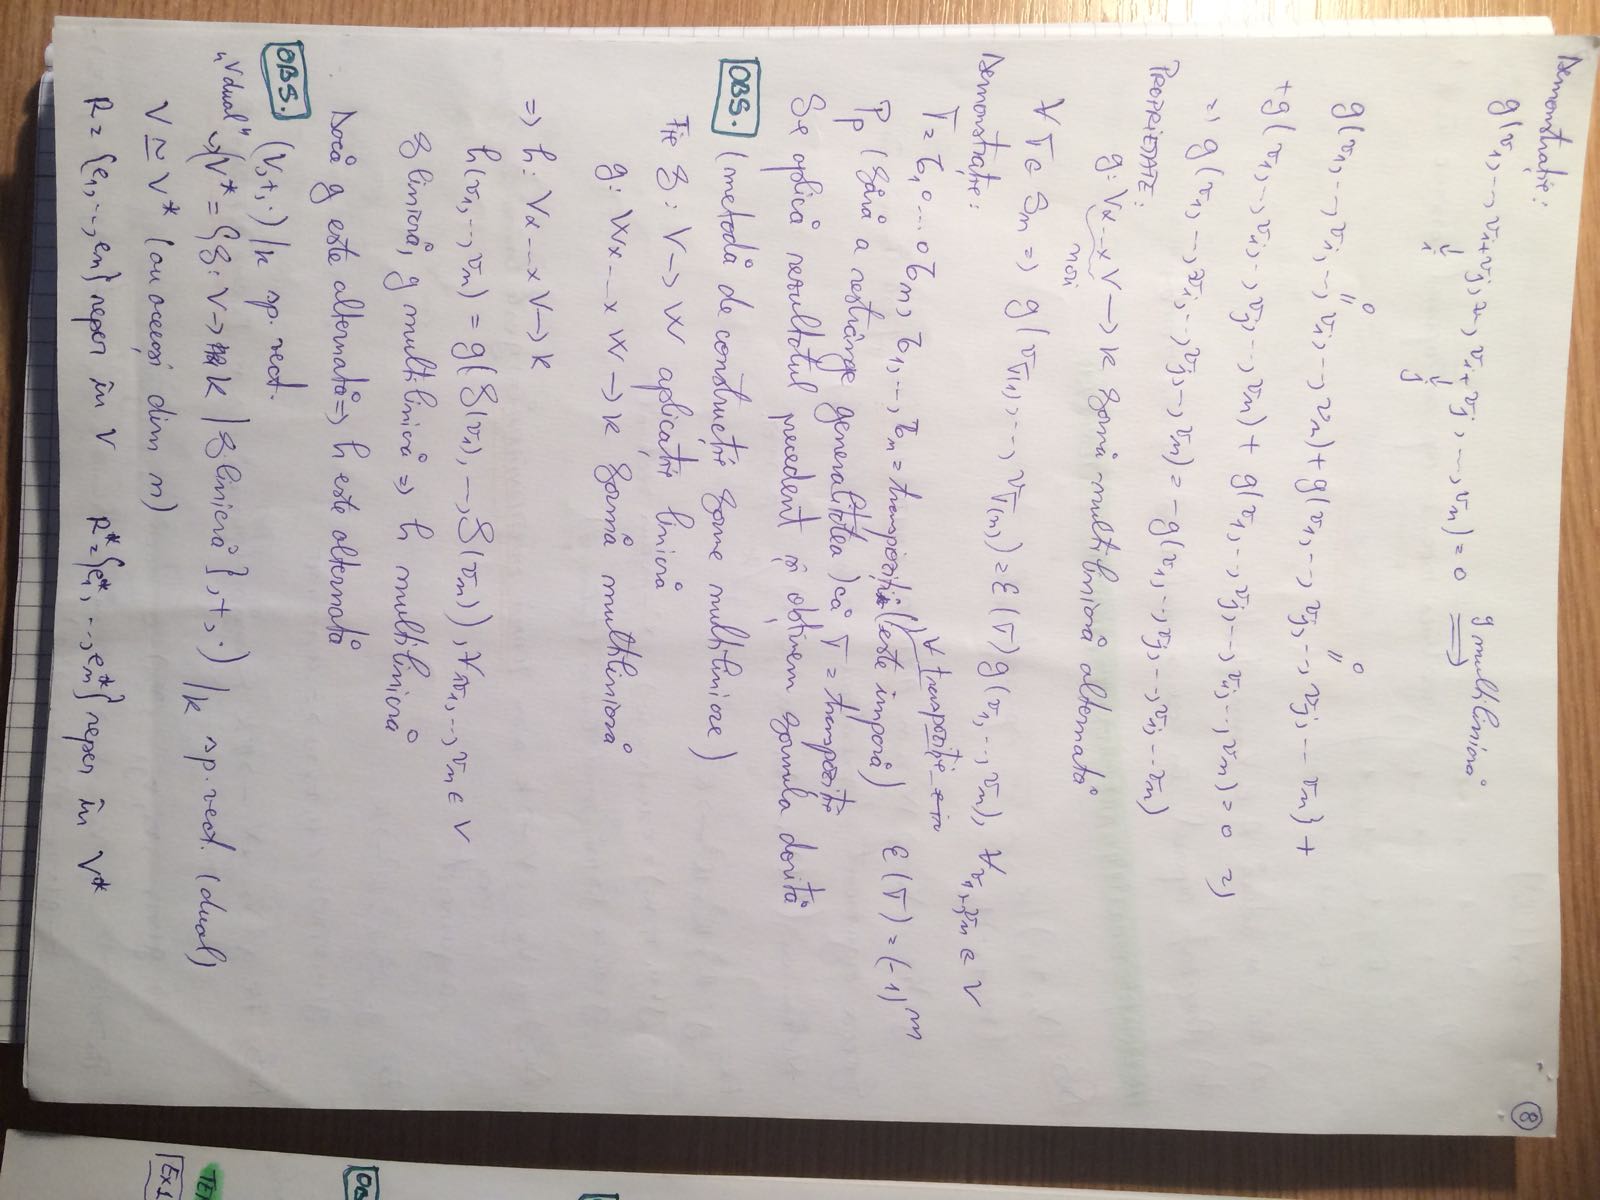 8
Demonstrație:
g(v1, ..., vi+vj, ..., vi+vj, ..., vn) = 0 g multiliniară ⟹
i j
g(v1, .., vi, .., vi, .., vn) + g(v1, .., vj, .., vj, .. vn) +
0 0
+g(v1, .., vi, .., vj, .., vn) + g(v1, .., vj, .., vi, .., vn) = 0 =)
=) g(v1, .., vi, .., vj, .., vn) = -g(v1, .., vj, .., vi, .. vn)
PROPRIETATE:
g: Vx...xV → K formă multiliniară alternată
n ori
∀ σ ∈ Sn => g(vσ(1), ..., vσ(n)) = ε(σ) g(v1, .., vn), ∀ v1, .., vn ∈ V
Demonstrație:
σ = τ1 ∘ ... ∘ τm, τ1, .., τm = transpoziții (∀ transpoziție e in
este impară) ε(σ) = (-1)^m
Pp (fără a restrânge generalitatea) că σ = transpoziție
Se aplică rezultatul precedent și obținem formula dorită
OBS. (metodă de construcție forme multiliniare)
Fie f: V → W aplicație liniară
g: Wx...xW → K formă multiliniară
=> h: Vx...xV → K
h(v1, .., vn) = g(f(v1), .., f(vn)), ∀ v1, .., vn ∈ V
f liniară, g multiliniară => h multiliniară
Dacă g este alternată => h este alternată
OBS. (V,+,·)/K sp. vect.
„V dual" → (V* = {f: V → K | f liniară}, +, ·)/K sp. vect. (dual)
V ≃ V* (au aceeași dim n)
R = {e1, .., en} reper în V R* = {e1*, .., en*} reper în V*
OBS
TE
Ex1